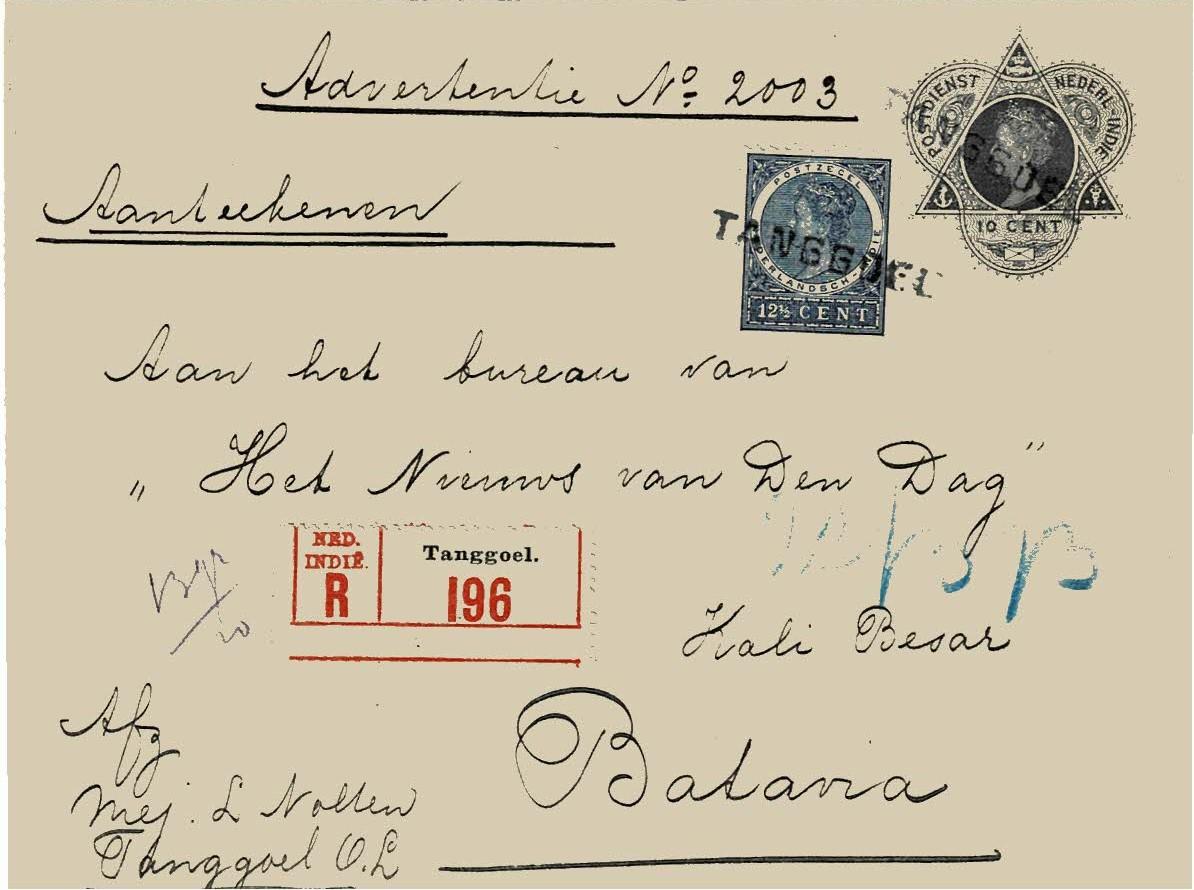 Advertentie No 2003
POSTDIENST NEDERL-INDIE
10 CENT
Aanteekenen
POSTZEGEL
NEDERLANDSCH-INDIE
12½ CENT
TANGGOEL
Aan het bureau van
„Het Nieuws van Den Dag"
NED.
INDIË.
R
Tanggoel.
196
Kali Besar
Batavia
Afz
Mej. L Nolten
Tanggoel O.L